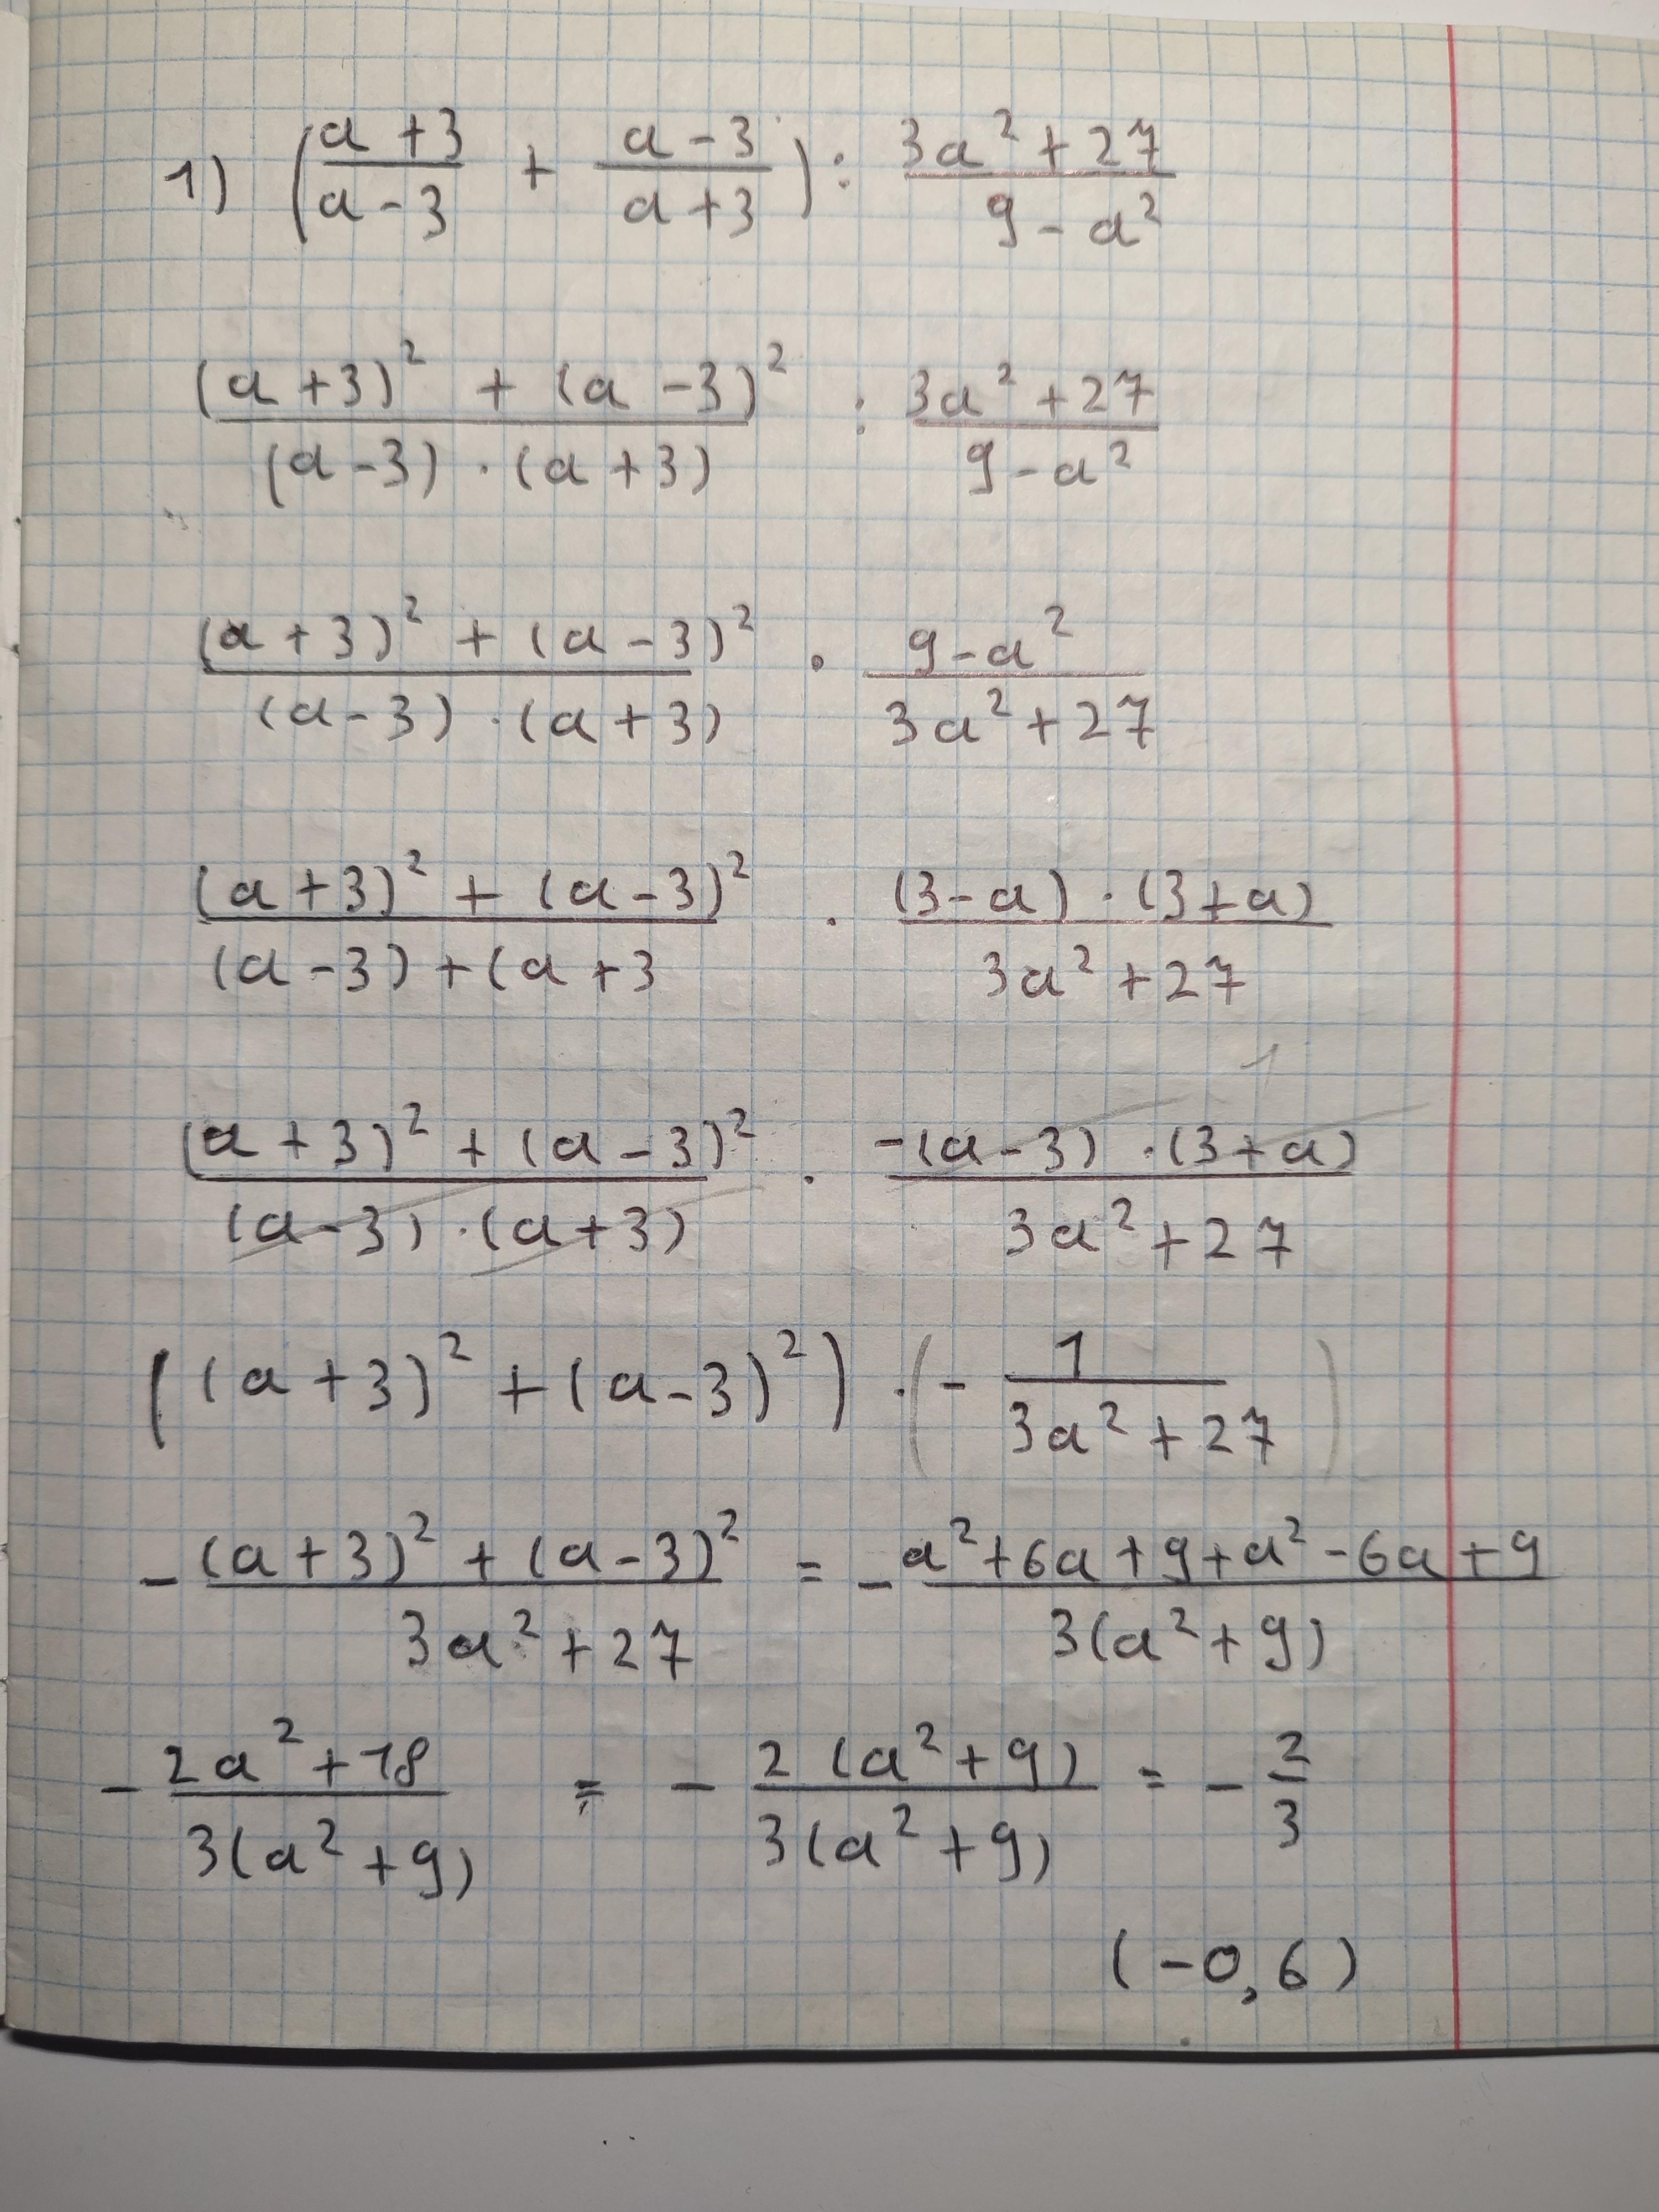 1) ( (a+3)/(a-3) + (a-3)/(a+3) ) : (3a²+27)/(9-a²)
((a+3)² + (a-3)²)/((a-3)·(a+3)) : (3a²+27)/(9-a²)
((a+3)² + (a-3)²)/((a-3)·(a+3)) · (9-a²)/(3a²+27)
((a+3)² + (a-3)²)/((a-3)+(a+3) · ((3-a)·(3+a))/(3a²+27)
1
((a+3)² + (a-3)²)/((a-3)·(a+3)) · (-(a-3)·(3+a))/(3a²+27)
((a+3)² + (a-3)²) · (- 1/(3a²+27))
- ((a+3)² + (a-3)²)/(3a²+27) = - (a²+6a+9+a²-6a+9)/(3(a²+9))
- (2a²+18)/(3(a²+9)) = - (2(a²+9))/(3(a²+9)) = - 2/3
(-0,6)